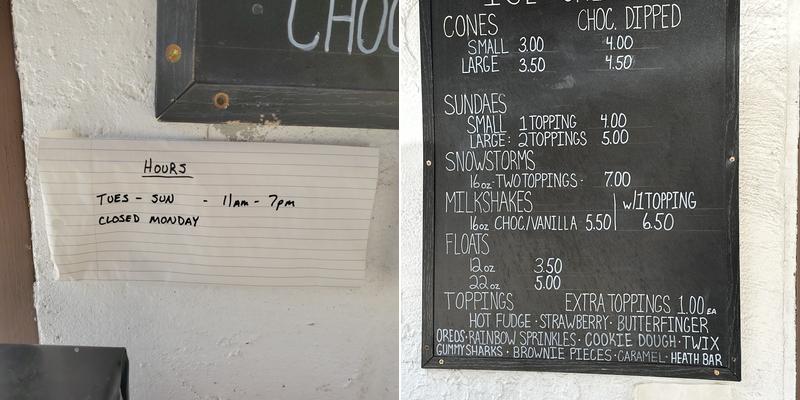 CHOC
HOURS
TUES - SUN - 11am - 7pm
CLOSED MONDAY
CONES CHOC. DIPPED
SMALL 3.00 4.00
LARGE 3.50 4.50
SUNDAES
SMALL 1 TOPPING 4.00
LARGE· 2 TOPPINGS 5.00
SNOWSTORMS
16oz·TWO TOPPINGS· 7.00
MILKSHAKES w/1 TOPPING
16oz CHOC./VANILLA 5.50 6.50
FLOATS
12oz 3.50
22oz 5.00
TOPPINGS EXTRA TOPPINGS 1.00 EA
HOT FUDGE · STRAWBERRY · BUTTERFINGER
OREOS · RAINBOW SPRINKLES · COOKIE DOUGH · TWIX
GUMMY SHARKS · BROWNIE PIECES · CARAMEL · HEATH BAR